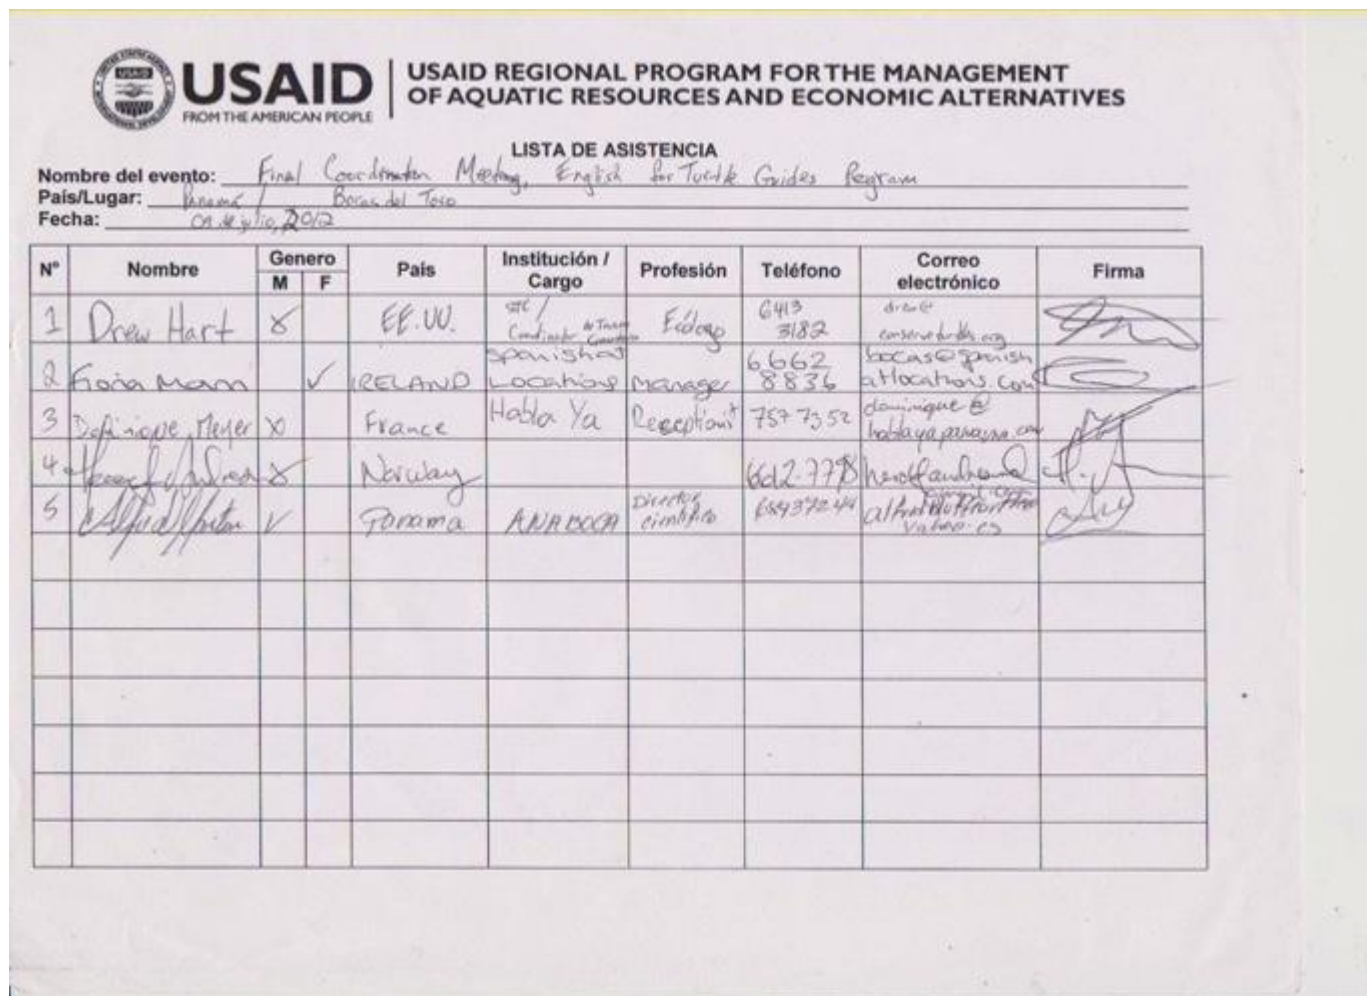 USAID
USAID
FROM THE AMERICAN PEOPLE
USAID REGIONAL PROGRAM FOR THE MANAGEMENT
OF AQUATIC RESOURCES AND ECONOMIC ALTERNATIVES
LISTA DE ASISTENCIA
Nombre del evento: Final Coordination Meeting, English for Turtle Guides Program
País/Lugar: Panamá / Bocas del Toro
Fecha: 2012
N° Nombre Genero País Institución / Cargo Profesión Teléfono Correo electrónico Firma
M F
1 Drew Hart X EE.UU. STC / Coordinador Ecólogo 6413 3182 drew@ conserveturtles.org
2 Fiona Mann ✓ IRELAND Spanish at Locations Manager 6662 8836 bocas@spanish atlocations.com
3 Meyer X France Habla Ya Receptionist 757 7352 dominique @ hablayapanama.com
4 X Norway
5 ✓ Panama ANABOCA Director científico yahoo.es